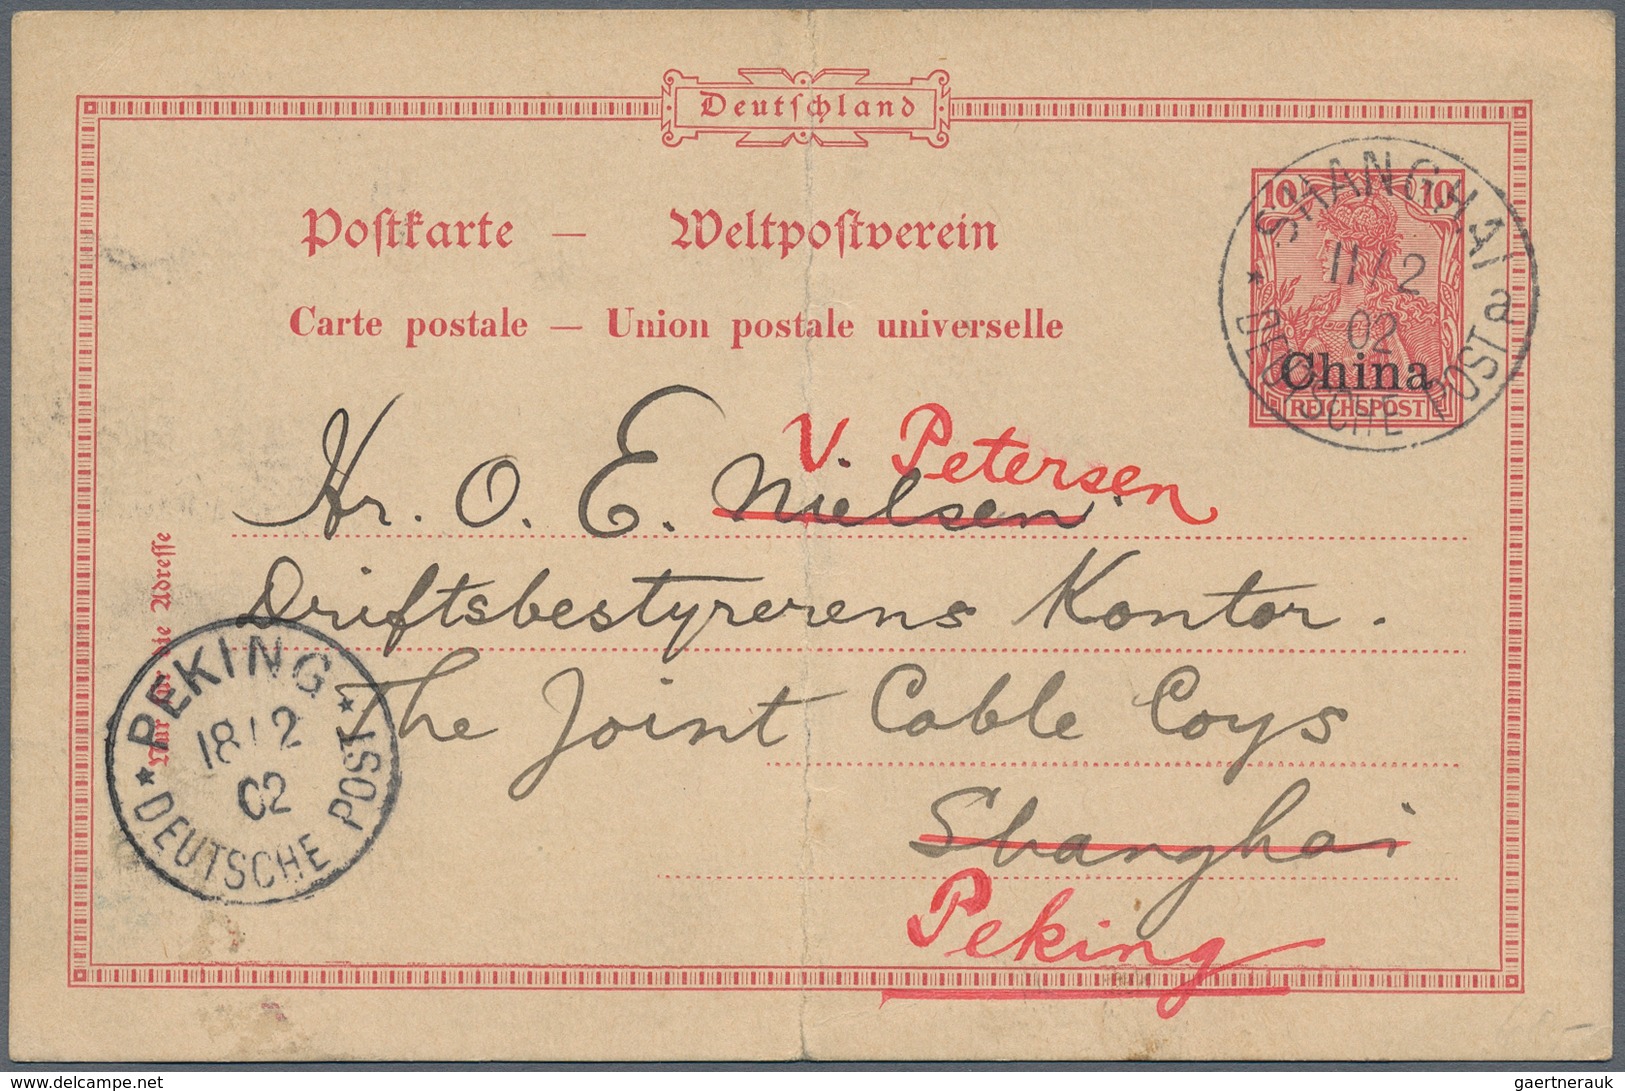 Deutschland
Postkarte — Weltpostverein
Carte postale — Union postale universelle
10 10
China
REICHSPOST
SHANGHAI a
11/2
02
* DEUTSCHE POST
V. Petersen
Hr. O. E. Nielsen.
Driftsbestyrerens Kontor.
The Joint Cable Coys
Shanghai
Peking
Nur für die Adresse
PEKING
18/2
02
* DEUTSCHE POST *
© www.delcampe.net
gaertnerauk